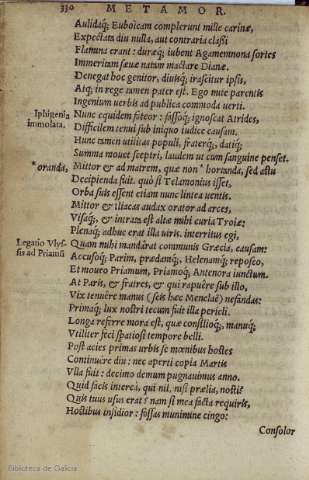 330 METAMOR.
Aulidaq́; Euboicam complerunt mille carinæ,
Expectata diu nulla, aut contraria classi
Flamina erant: duræq́; iubent Agamemnona sortes
Immeritam sæuæ natam mactare Dianæ.
Denegat hoc genitor, diuisq́; irascitur ipsis,
Atq́; in rege tamen pater est. Ego mite parentis
Ingenium uerbis ad publica commoda uerti.
Iphigenia
Immolata.
Nunc equidem fateor: fassoq́; ignoscat Atrides,
Difficilem tenui sub iniquo iudice causam.
Hunc tamen utilitas populi, fraterq́;, datiq́;
Summa mouet sceptri, laudem ut cum sanguine penset.
*oranda,
Mittor & ad matrem, quæ non *horanda, sed astu
Decipienda fuit. quò si Telamonius isset,
Orba suis essent etiam nunc lintea uentis.
Mittor & Iliacas audax orator ad arces,
Visaq́;, & intrata est altæ mihi curia Troiæ:
Plenaq́; adhuc erat illa uiris. interritus egi,
Legatio Vlys-
sis ad Priamū
Quam mihi mandârat communis Græcia, causam:
Accusoq́; Parim, prædamq́;, Helenamq́; reposco,
Et moueo Priamum, Priamoq́; Antenora iunctum.
At Paris, & fratres, & qui rapuêre sub illo,
Vix tenuêre manus (scis hæc Menelaë) nefandas:
Primaq́; lux nostri tecum fuit illa pericli.
Longa referre mora est, quæ consilioq́;, manuq́;
Vtiliter feci spatiosi tempore belli.
Post acies primas urbis se mœnibus hostes
Continuêre diu: nec aperti copia Martis
Vlla fuit: decimo demum pugnauimus anno.
Quid facis interea, qui nil, nisi prælia, nosti?
Quis tuus usus erat? nam si mea facta requiris,
Hostibus insidior: fossas munimine cingo:
Consolor
Biblioteca de Galicia